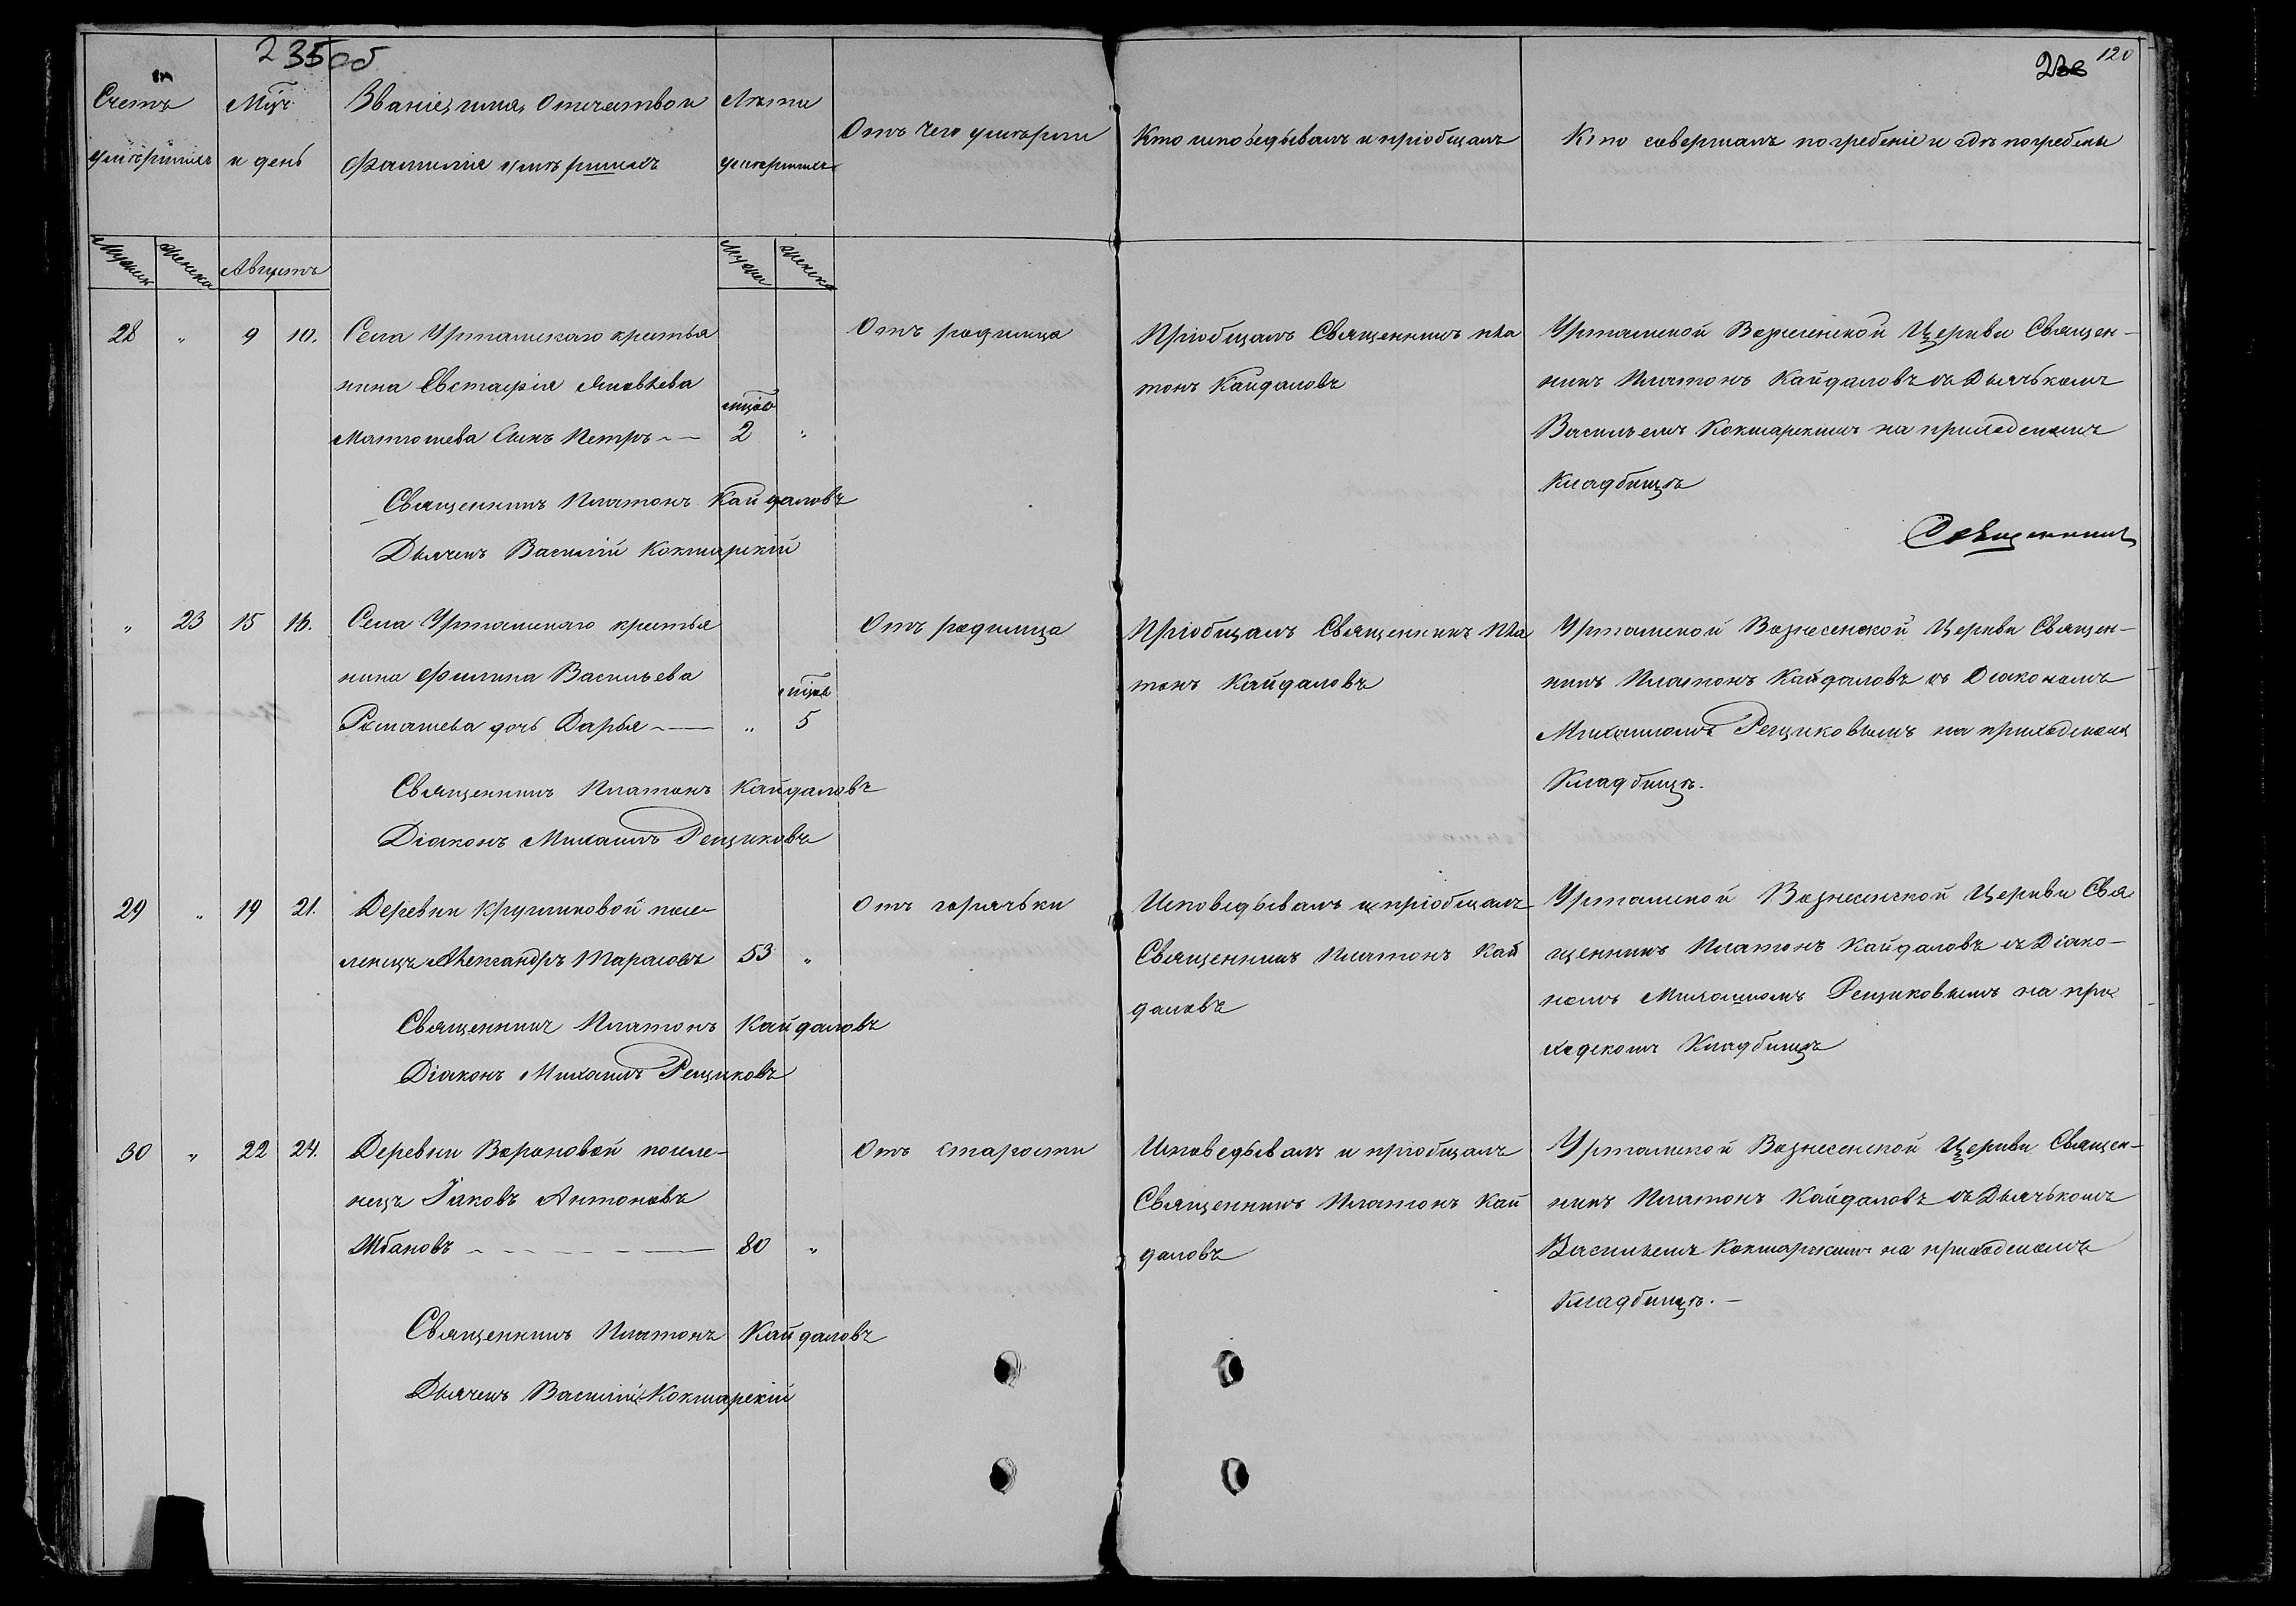 235об
120
Счетъ умершихъ
Мцъ и день
Званіе, имя, отчество и фамилія умершихъ
Лета умершихъ
Отъ чего умерли
Кто исповедывалъ и пріобщалъ
Кто совершалъ погребеніе и где погребены
Мужеск
Женска
Августъ
Мужеск
Женска
28 „ 9 10. Села Уртамскаго крестья
нина Евстафія Яковлева
Матюшева Сынъ Петръ
мцовъ
2 „
Отъ родимца
Пріобщалъ Священникъ Пла
тонъ Кайдаловъ
Уртамской Вознесенской Церкви Священ-
никъ Платонъ Кайдаловъ съ Дьячькомъ
Васильемъ Кокшарскимъ на приходскомъ
Кладбищѣ
Священникъ Платонъ Кайдаловъ
Дьячекъ Василій Кокшарскій
Священникъ
„ 23 15 16. Села Уртамскаго крестья
нина Филипа Васильева
дочь Дарья
мцовъ
„ 5
Отъ родимца
Пріобщалъ Священникъ Пла
тонъ Кайдаловъ
Уртамской Вознесенской Церкви Священ-
никъ Платонъ Кайдаловъ съ Діакономъ
Михаиломъ Рещиковымъ на приходскомъ
Кладбищѣ.
Священникъ Платонъ Кайдаловъ
Діаконъ Михаилъ Рещиковъ
29 „ 19 21. Деревни Кругликовой посе-
ленецъ Александръ Тарасовъ
53 „
Отъ горячьки
Исповедывалъ и пріобщалъ
Священникъ Платонъ Кай
даловъ
Уртамской Вознесенской Церкви Свя
щенникъ Платонъ Кайдаловъ съ Діако-
номъ Михаиломъ Рещиковымъ на при
ходскомъ Кладбищѣ
Священникъ Платонъ Кайдаловъ
Діаконъ Михаилъ Рещиковъ
30 „ 22 24. Деревни Вороновой поселе-
нецъ Іаковъ Антоновъ
Шбановъ
80 „
Отъ старости
Исповедывалъ и пріобщалъ
Священникъ Платонъ Кай
даловъ
Уртамской Вознесенской Церкви Священ-
никъ Платонъ Кайдаловъ съ Дьячькомъ
Васильемъ Кокшарскимъ на приходскомъ
Кладбищѣ.
Священникъ Платонъ Кайдаловъ
Дьячекъ Василій Кокшарскій